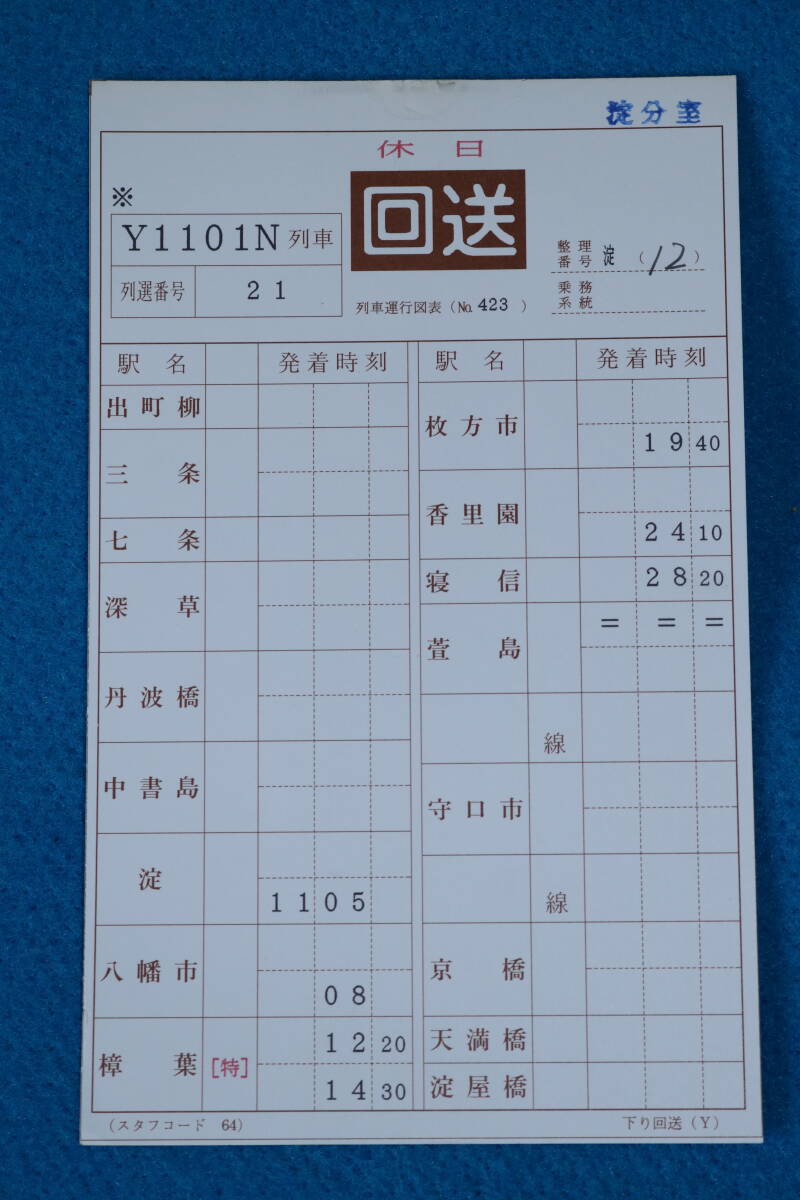 淀分室
休日
※
回送
Y1101N 列車
列選番号 21
列車運行図表（No. 423 ）
整理番号 淀 （12）
乗務系統
駅名 発着時刻
出町柳
三条
七条
深草
丹波橋
中書島
淀 1105
八幡市 08
樟葉 [特] 12 20
14 30
（スタフコード 64）
駅名 発着時刻
枚方市 19 40
香里園 24 10
寝信 28 20
萱島 = = =
線
守口市
線
京橋
天満橋
淀屋橋
下り回送（Y）